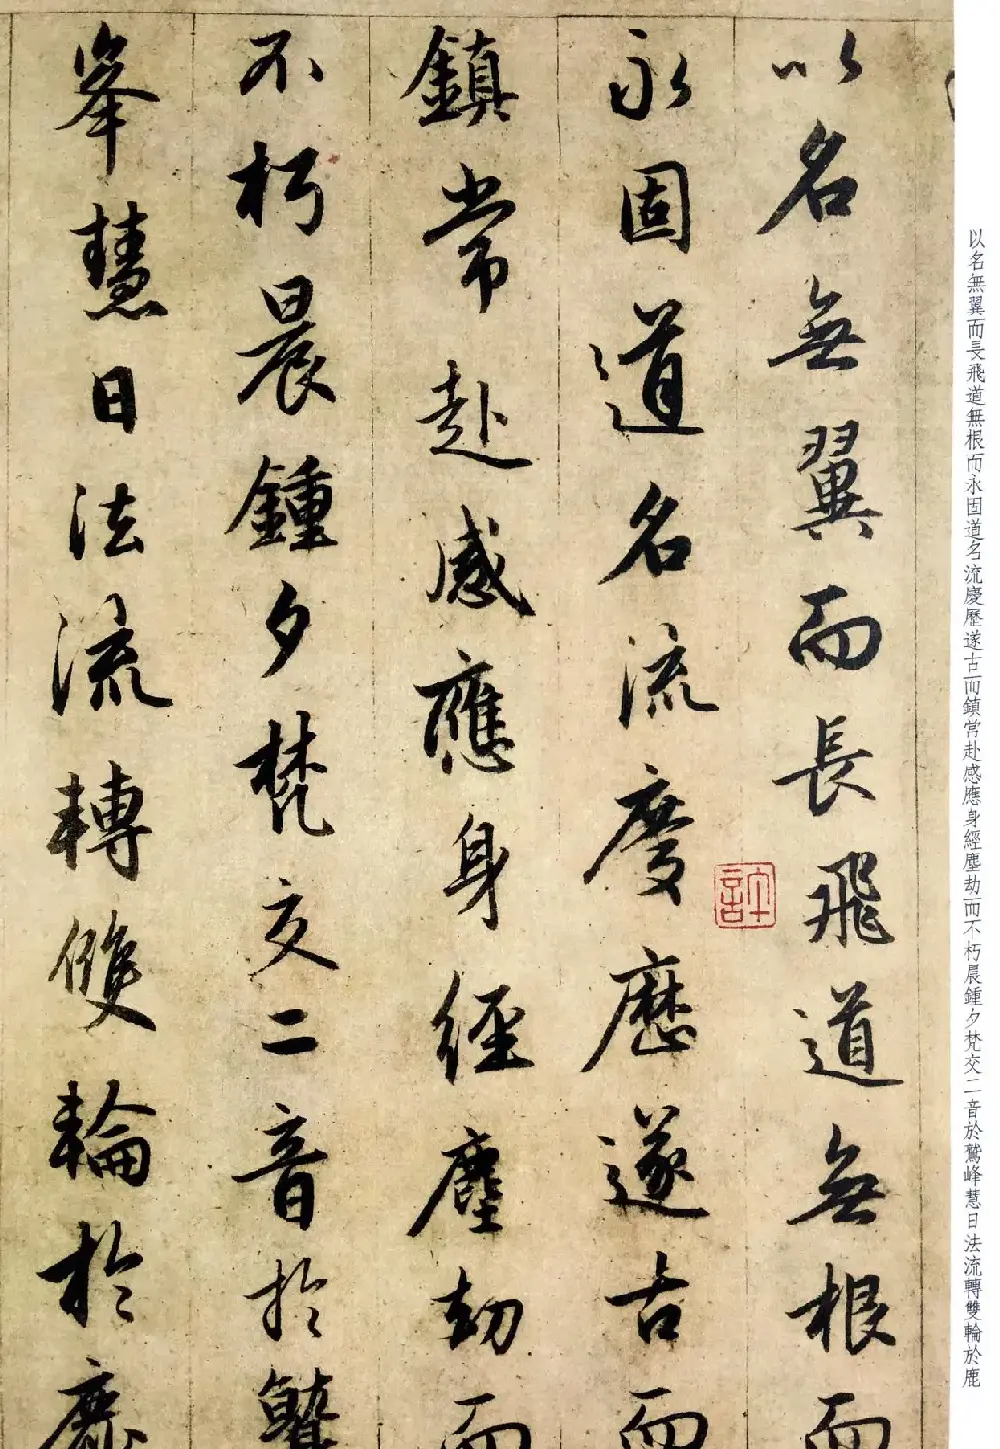 以名無翼而長飛道無根而
永固道名流慶歷遂古而
鎮常赴感應身經塵劫而
不朽晨鍾夕梵交二音於鷲
峯慧日法流轉雙輪於鹿
以名無翼而長飛道無根而永固道名流慶歷遂古而鎮常赴感應身經塵劫而不朽晨鍾夕梵交二音於鷲峰慧日法流轉雙輪於鹿